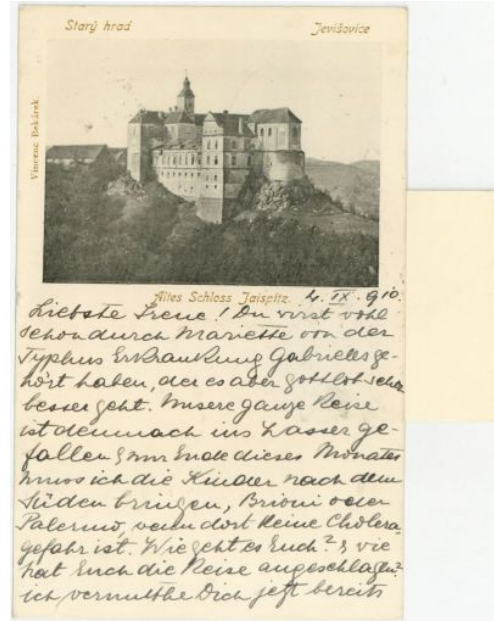 Starý hrad Jevišovice
Vincenc Bekárek
Altes Schloss Jaispitz. 4. IX. 910.
Liebste Irene! Du wirst wohl
schon durch Mariette von der
Typhus Erkrankung Gabrieles ge-
hört haben, der es aber gottlob schon
besser geht. Unsere ganze Reise
ist demnach ins Wasser ge-
fallen & nur Ende dieses Monates
muss ich die Kinder nach dem
Süden bringen, Brioni oder
Palermo, wenn dort keine Cholera
gefahr ist. Wie geht es Euch? & wie
hat Euch die Reise angeschlagen?
ich vermuthe Dich jetzt bereits